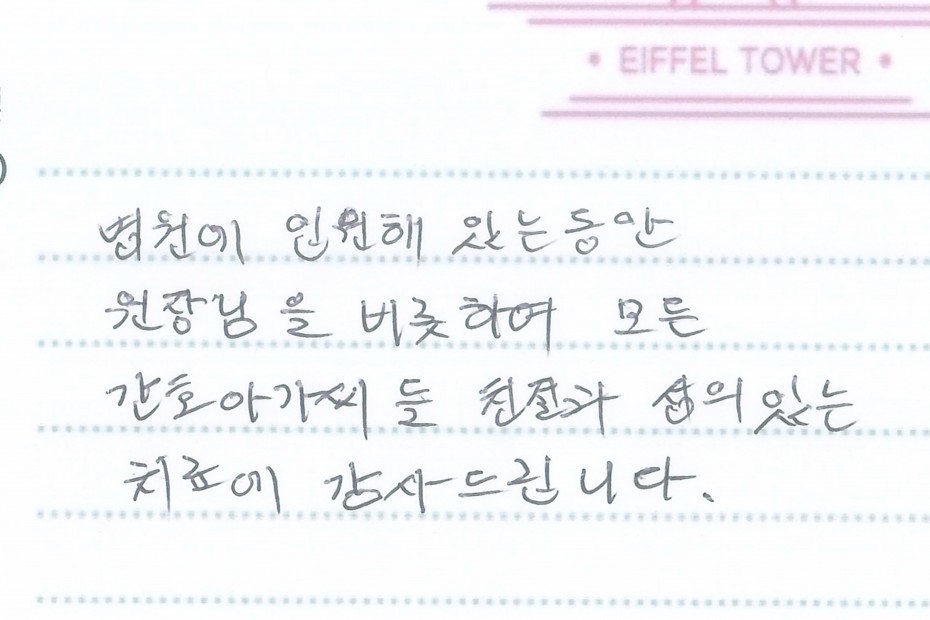 • EIFFEL TOWER •
병원에 입원해 있는동안
원장님을 비롯하여 모든
간호아가씨들 친절과 성의있는
치료에 감사드린니다.